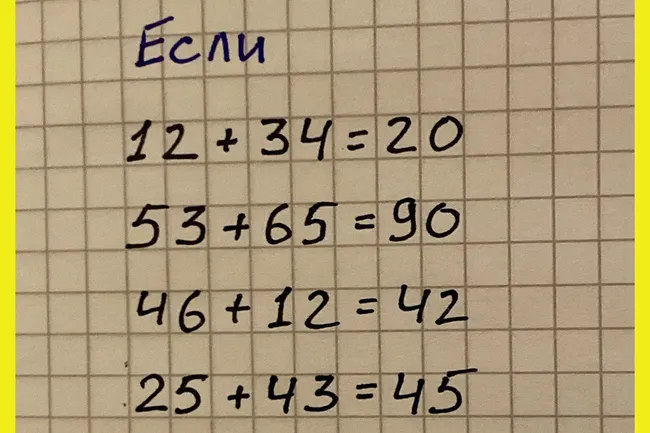 Если
12 + 34 = 20
53 + 65 = 90
46 + 12 = 42
25 + 43 = 45